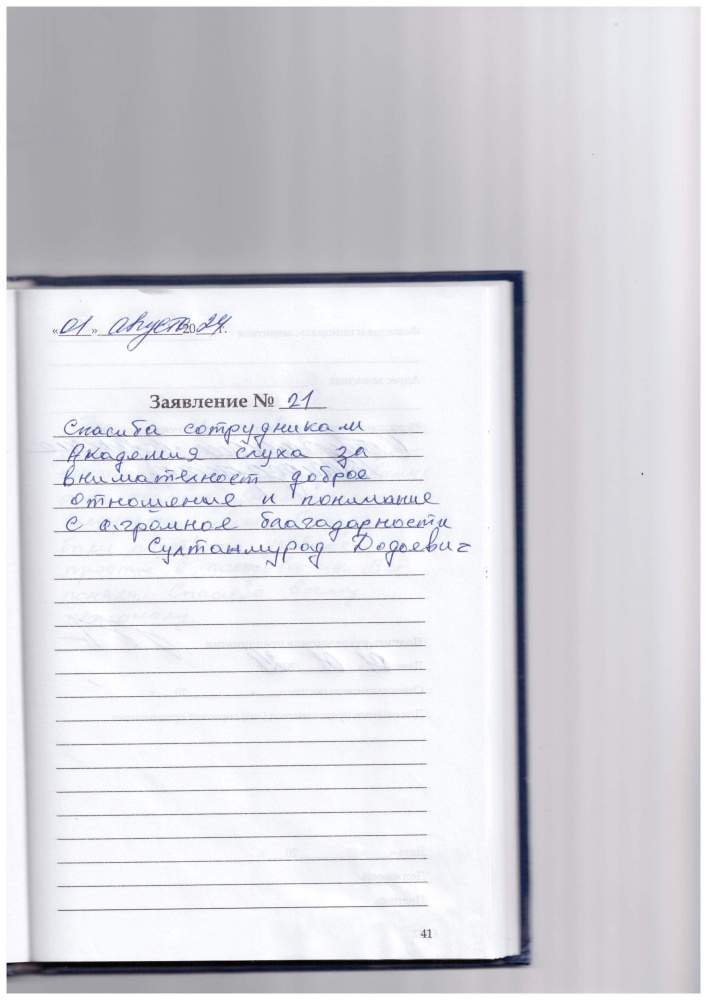 «01» Август 2024.
Заявление № 21
Спасиба сотрудникам
Академия слуха за
вниматехност доброе
отношение и понимание
С огромное благодарности
Султанмурад Додоевич
41